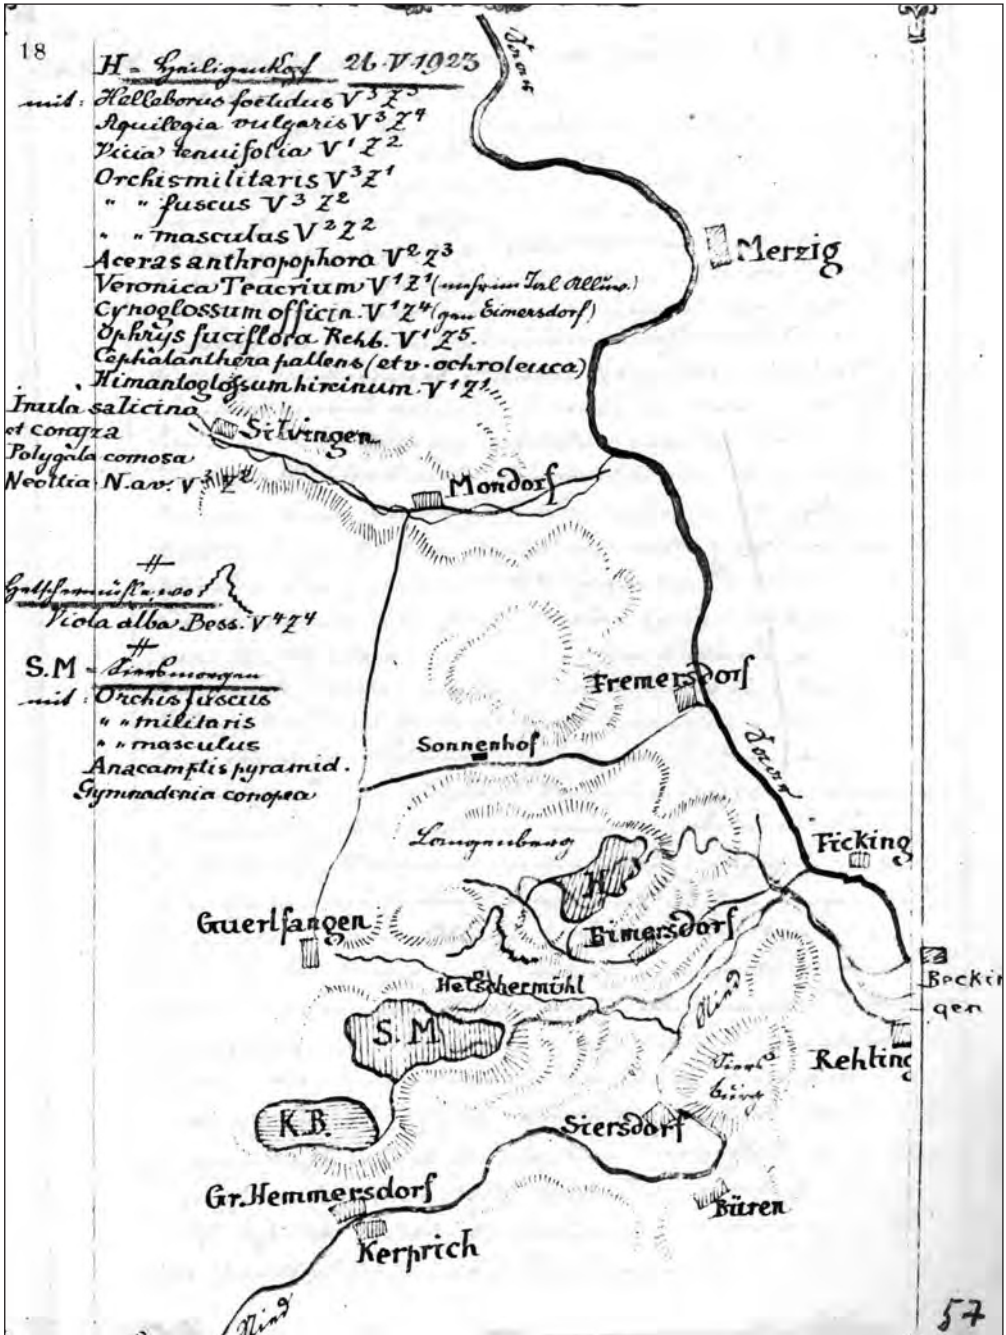 18
H = Heiligenkopf 26.V.1923
mit: Helleborus foetidus V³ Z³
Aquilegia vulgaris V³ Z⁴
Vicia tenuifolia V¹ Z²
Orchis militaris V³ Z¹
" " fuscus V³ Z²
" " masculus V² Z²
Aceras anthropophora V² Z³
Veronica Teucrium V¹ Z¹ (mehr im Tal Alluv.)
Cynoglossum officin. V¹ Z⁴ (gen Eimersdorf)
Ophrys fuciflora Rchb. V¹ Z⁵.
Cephalanthera pallens (et v. ochroleuca)
Himantoglossum hircinum. V¹ Z¹.
Inula salicina
et conyza
Polygala comosa
Neottia N. av. V³ Z²
#
Hetschermühle, wo:
Viola alba Bess. V⁴ Z⁴
#
S.M = Siersmorgen
mit: Orchis fuscus
" " militaris
" " masculus
Anacamptis pyramid.
Gymnadenia conopea
Saar
Merzig
Silvingen
Mondorf
Fremersdorf
Sonnenhof
Saar
Langenberg
Ficking
H
Guerlfangen
Eimersdorf
Hetschermühl
Nied
Beckin
gen
S.M
Rehling
Siers
burg
K.B.
Siersdorf
Gr. Hemmersdorf
Büren
Kerprich
Nied
57